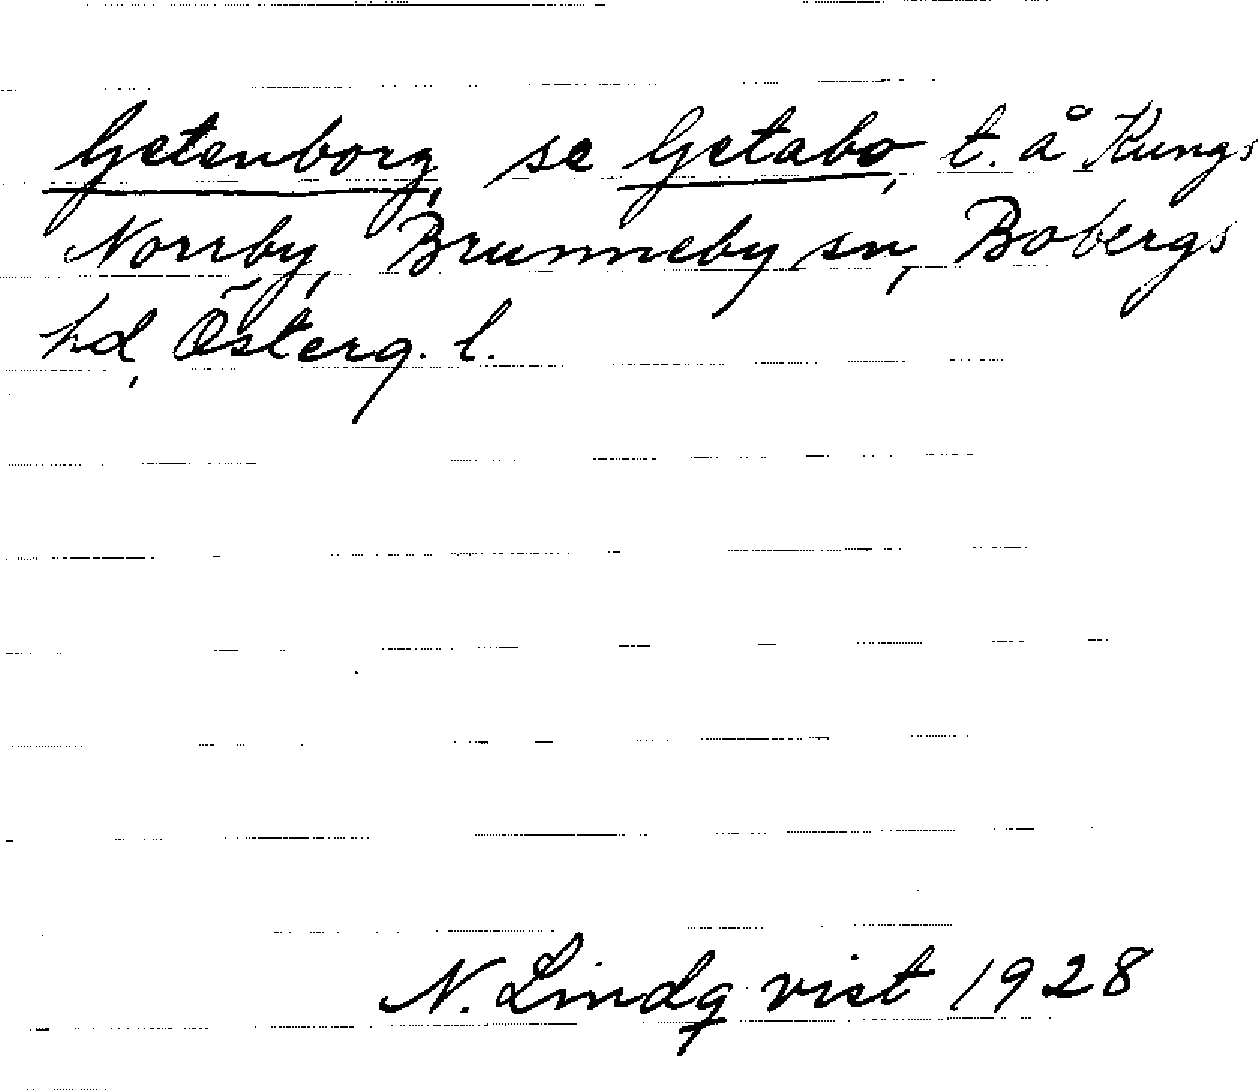 Getenborg, se Getabo, t. å Kungs
Norrby, Brunneby sn, Bobergs
hd, Österg. l.
N. Lindqvist 1928